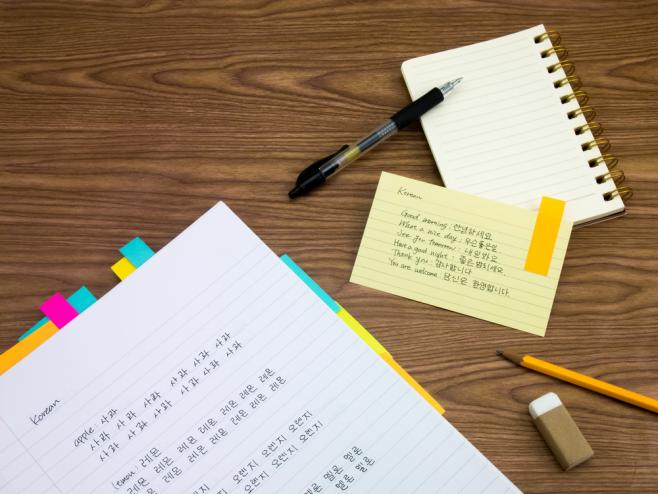 Korean
Good morning : 안녕하세요
What a nice day : 우수좋은일
See you tomorrow : 내일봐요
Have a good night : 좋은밤되세요.
Thank you : 감사합니다
You are welcome : 당신은 환영합니다.
Korean
apple 사과
사과 사과 사과 사과 사과 사과
사과 사과 사과 사과 사과 사과
lemon : 레몬
레몬 레몬 레몬 레몬 레몬 레몬
레몬 레몬 레몬 레몬 레몬 레몬
오렌지 오렌지 오렌지
오렌지 오렌지 오렌지
멜론 멜론
멜론 멜론